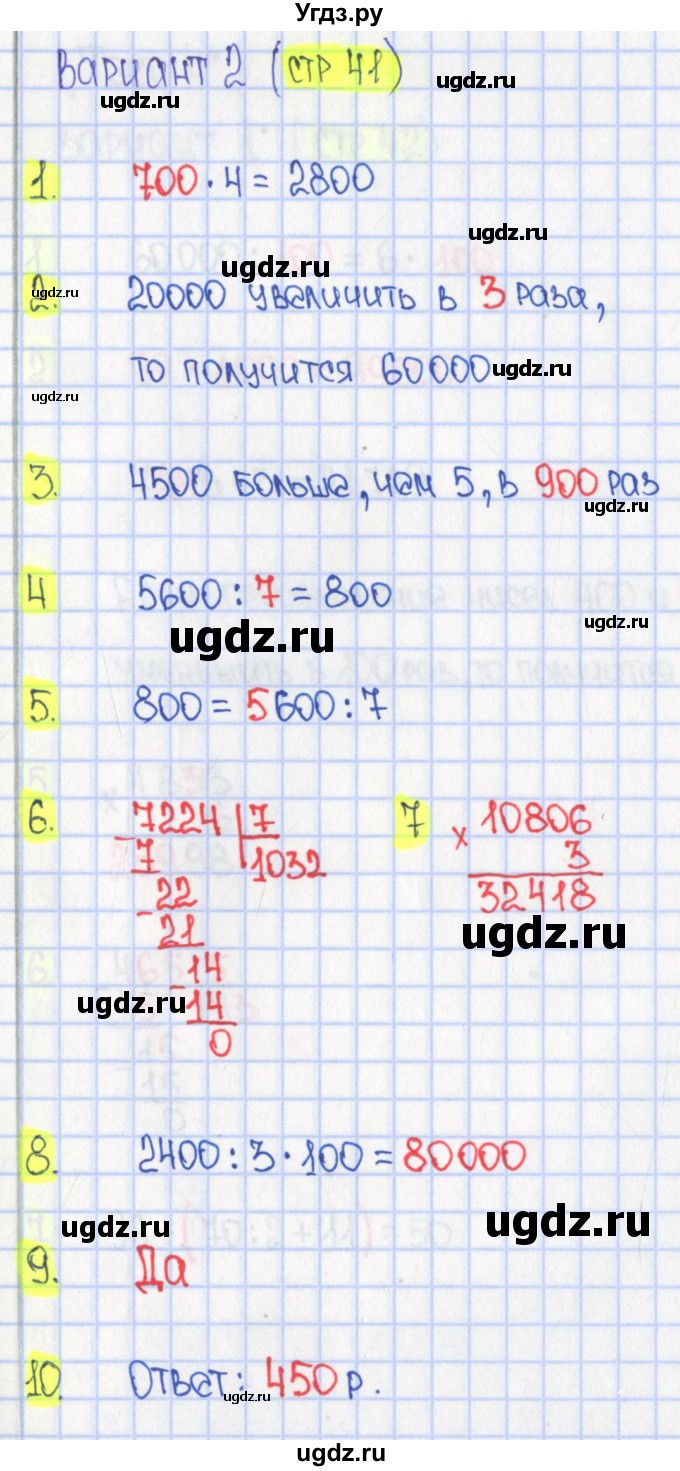 Угдз.ру
Вариант 2 (стр 41)
ugdz.ru
ugdz.ru
1. 700 · 4 = 2800
ugdz.ru
ugdz.ru
2. 20000 увеличить в 3 раза,
ugdz.ru
то получится 60000
ugdz.ru
ugdz.ru
3. 4500 больше, чем 5, в 900 раз
ugdz.ru
4 5600 : 7 = 800
ugdz.ru
ugdz.ru
5. 800 = 5600 : 7
6. 7224 | 7
- 7 1032
22
- 21
14
- 14
0
7 10806
x 3
32418
ugdz.ru
ugdz.ru
8. 2400 : 3 · 100 = 80000
ugdz.ru
ugdz.ru
9. Да
10. Ответ: 450 р.
ugdz.ru
ugdz.ru